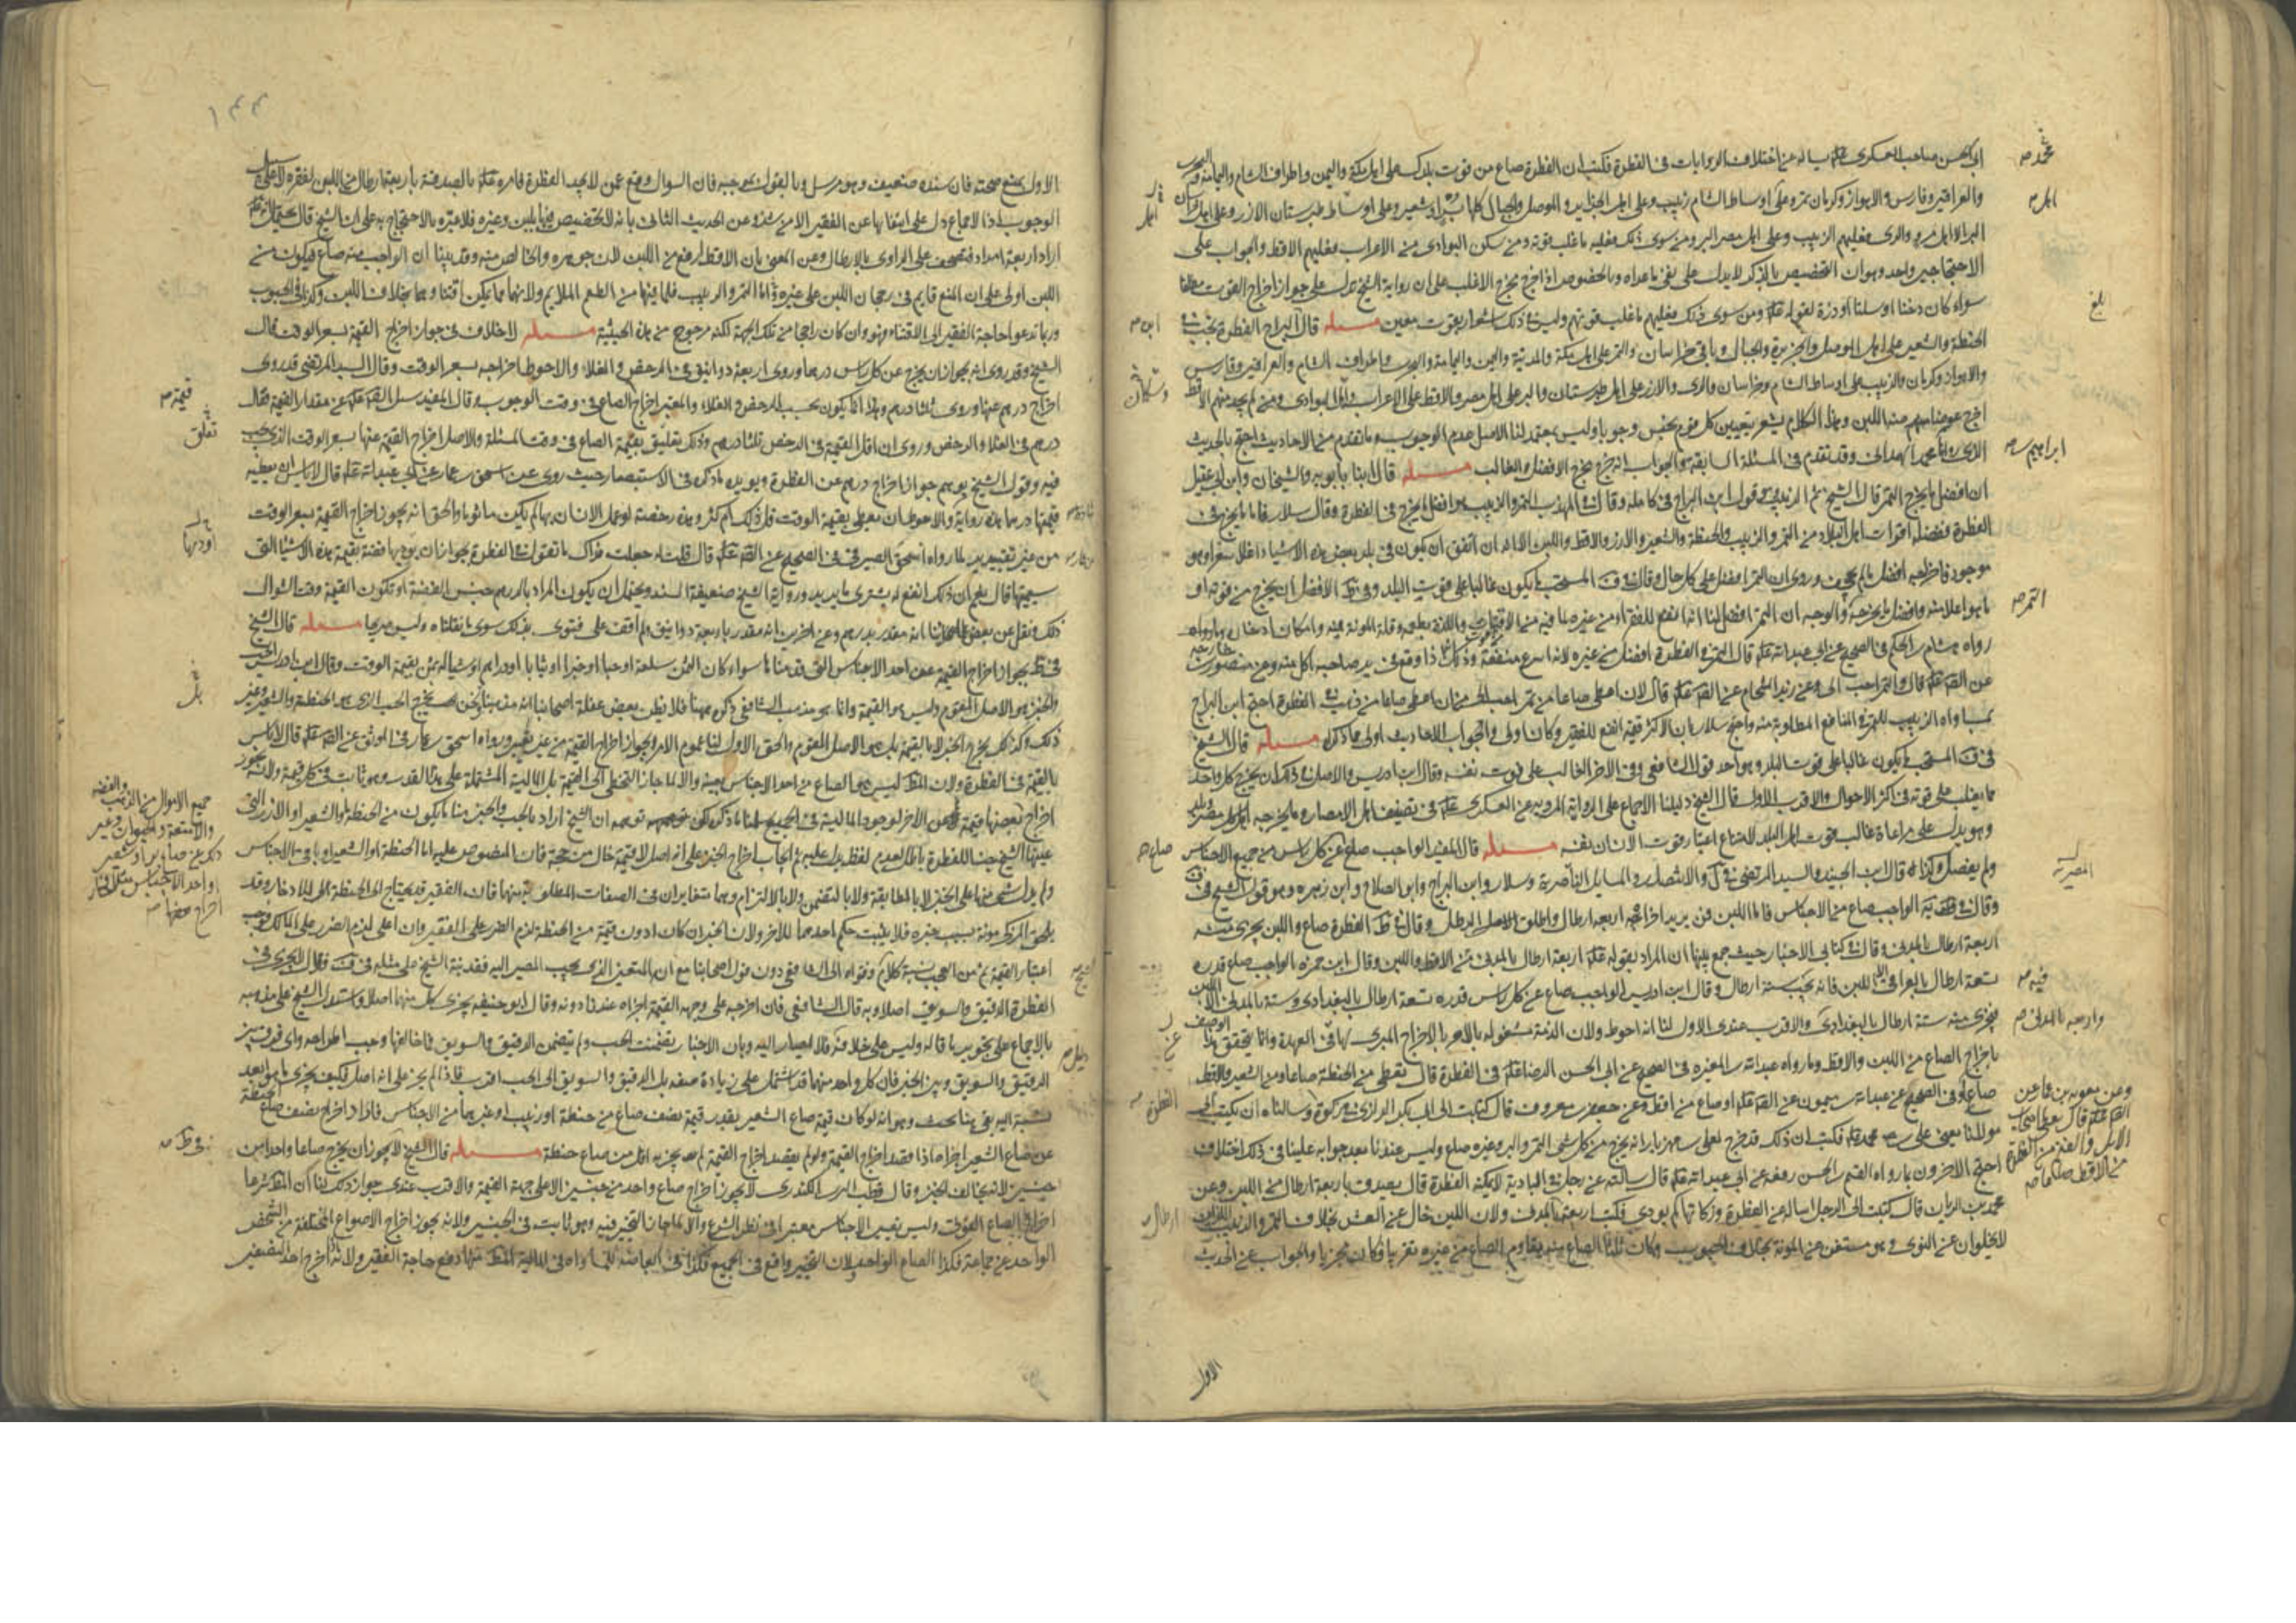 ابي الحسن صاحب العسكرى عليه السلام يساله عن اختلاف الروايات فى الفطرة فكتب ان الفطرة صاع من قوت بلدك على اهل مكة واليمن واطراف الشام واليمامة والبحرين
والعراقين وفارس والاهواز وكرمان تمر وعلى اوساط الشام زبيب وعلى اهل الجزاير والموصل والجبال كلها بر او شعير وعلى اوساط طبرستان الارز وعلى اهل خراسان
البر الا اهل مرو والرى فعليهم الزبيب وعلى اهل مصر البر ومن سوى ذلك فعليه ما غلب قوته ومن سكن البوادى من الاعراب فعليهم الاقط والجواب على
الاحتجاجين واحد وهو ان التخصيص بالذكر لا يدل على نفى ما عداه وبالخصوص اذا خرج مخرج الاغلب على ان رواية الشيخ تدل على جواز اخراج القوت مطلقا
سواء كان دخنا او سلتا او ذرة لقوله ومن سوى ذلك فعليهم ما غلب قوتهم وليس فى ذلك اشعار بقوت معين مسئله قال ابن البراج الفطرة تجب فى
الحنطة والشعير على اهل الموصل والجزيرة والجبال وباقى خراسان والتمر على اهل مكة والمدينة واليمن واليمامة والبحرين واطراف الشام والعراقين وفارس
والاهواز وكرمان والزبيب على اوساط الشام وخراسان والرى والارز على اهل طبرستان والبر على اهل مصر والاقط على الاعراب واهل البوادى ومن لم يجد منهم الاقط
اخرج عوضا منه اللبن وهذا الكلام يشعر بتعيين كل قوم بجنس وجوبا وليس بمعتمد لنا الاصل عدم الوجوب وما تقدم من الاحاديث احتج بالحديث
الذى رواه محمد الهمدانى وقد تقدم فى المسئلة السابقة والجواب انه خرج مخرج الافضل والغالب مسئله قال ابنا بابويه والشيخان وابن ابى عقيل
ان افضل ما يخرج التمر قال الشيخ ثم الزبيب وقول ابن البراج فى كامله وقال فى المهذب التمر والزبيب هو افضل ما يخرج فى الفطرة وقال سلار فاما ما يخرج فى
الفطرة فقضل اقوات اهل البلاد من التمر والزبيب والحنطة والشعير والارز والاقط واللبن الا انه ان اتفق ان يكون فى بلد بعض هذه الاشياء اغلا سعرا وهو
موجود فاخراجه افضل ما لم يجحف وروى ان التمر افضل على كل حال وقال فى ف المستحب ما يكون غالبا على قوت البلد وفى ط الافضل ان يخرج من قوته او
ما هو اعلا منه وافضل ما يخرجه والوجه ان التمر افضل لنا انه انفع للفقراء من غيره
رواه هشام بن الحكم فى الصحيح عن ابى عبد الله قال التمر فى الفطرة افضل من غيره لانه اسرع منفعة وذلك انه اذا وقع فى يد صاحبه اكل منه وعن منصور بن خارجه
عن الصادق قال والتمر احب الى وعن زيد الشحام عن الصادق قال لان اعطى صاعا من تمر احب الى من ان اعطى صاعا من ذهب فى الفطرة احتج ابن البراج
بمساواه الزبيب للتمر فى المنافع المطلوبة منه واحتج سلار بان الاكثر قيمة انفع للفقير وكان اولى والجواب الاحاديث اولى مما ذكره مسئله قال الشيخ
فى ف المستحب ما يكون غالبا على قوت البلد وهو احد قولى الشافعى وفى الاخر الغالب على قوت نفسه وقال ابن ادريس والاصل فى ذلك ان يخرج كل واحد
مما يغلب على قوته فى اكثر الاحوال والاقرب الاول قال الشيخ دليلنا الاجماع على الرواية المروية عن العسكرى فى تصنيف اهل الامصار وما يخرجه اهل كل مصر وبلد
وهو يدل على مراعاة غالب قوت اهل البلد لامتناع اعتبار قوت الانسان نفسه مسئله قال المفيد الواجب صاع عن كل راس من جميع الاجناس
ولم يفصل وكذا قال ابن الجنيد والسيد المرتضى فى ل والانتصار والمسايل الناصرية وسلار وابن البراج وابو الصلاح وابن زهره وهو قول الشيخ فى ف
وقال فى ط الواجب صاع من الاجناس فاما اللبن فمن يريد اخراجه اربعة ارطال واطلق الرطل وقال فى ط الفطرة صاع واللبن يجزى منه
اربعة ارطال بالمدنى وقال فى كتابى الاخبار حيث جمع بينها ان المراد بقوله اربعة ارطال بالمدنى من الاقط واللبن وقال ابن حمزه الواجب صاع قدره
تسعة ارطال بالعراقى الا اللبن فانه يجب ستة ارطال وقال ابن ادريس الواجب صاع عن كل راس قدره تسعة ارطال بالبغدادى وستة بالمدنى الا اللبن
فيجزى منه ستة ارطال بالبغدادى والاقرب عندى الاول لنا انه احوط ولان الذمة مشغوله بالامر بالاخراج المبرى لها فى العهدة وانما يتحقق هذا الوصف
باخراج الصاع من اللبن والاقط وما رواه عبد الله بن المغيره فى الصحيح عن ابى الحسن الرضا فى الفطرة قال يعطى من الحنطة صاعا ومن الشعير والاقط
صاعا وفى الصحيح عن عبد الله بن ميمون عن الصادق او صاع من اقط وعن جعفر بن معروف قال كتبت الى ابى بكر الرازى فى زكوة وسالناه ان يكتب الى
مولانا يعنى على بن محمد فكتب ان ذلك قد خرج لعلى بن مهزيار انه يخرج من كل شى التمر والبر وغيره صاع وليس عندنا بعد جوابه علينا فى ذلك اختلاف
احتج الاخرون بما رواه القسم بن الحسن رفعه عن ابى عبد الله قال سالته عن رجل فى البادية لا يمكنه الفطرة قال يصدق باربعة ارطال من اللبن وعن
محمد بن الريان قال كتبت الى الرجل اساله عن الفطرة وزكاتها كم يودى فكتب اربعة ارطال بالمدنى ولان اللبن خال عن الغش بخلاف التمر والزبيب اللذين
لا يخلوان عن النوى وهو مستغن عن المونة بخلاف الحبوب وكان ثلثا الصاع منه يقاوم الصاع من غيره تقريبا فكان مجزيا والجواب عن الحديث
محمد صه
اهل صه
بلغ
ابراهيم بن صه
التمر صه
المصرية
فيه صه
واربعه بالمدنى صه
وعن معويه بن عمار عن
الصادق قال يعطى اصحاب
الابل والغنم من الفطرة
من الاقط صاعا صه
ابن صه
صاع صه
الفطرة صه
ارطال صه
الاول
١٤٤
الاول بمنع صحته فان سنده ضعيف وهو مرسل وبالقول بموجبه فان السوال وقع عمن لا يجد الفطرة فامره بالصدقة باربعة ارطال من اللبن لفقره لا على سبيل
الوجوب اذ الاجماع دل على انتفائها عن الفقير الا من شذ وعن الحديث الثانى بانه لا تخصيص فيها بلبن وغيره فلا عبرة بالاحتجاج به على ان الشيخ قال يحتمل انه
اراد اربعة امداد فتصحف على الراوى بالارطال وعن المعنى بان الاقط ارفع من اللبن لانه جوهره والخالص منه وقد بينا ان الواجب منه صاع فيكون من
اللبن اولى على ان المنع قايم فى رجحان اللبن على غيره فاما التمر والزبيب فلما فيهما من الطعم الملايم ولانهما مما يمكن اقتناوهما بخلاف اللبن وكذلك فى الحبوب
وربما تدعو حاجة الفقير الى الاقتناء فهو وان كان راجحا من تلك الجهة لكنه مرجوح من هذه الحيثية مسئله لا خلاف فى جواز اخراج القيمة بسعر الوقت قال
الشيخ وقد روى انه يجوز ان يخرج عن كل راس درهما وروى اربعة دوانيق فى الرخص والغلاء والاحوط اخراجه بسعر الوقت وقال السيد المرتضى قد روى
اخراج درهم عنها وروى ثلثا درهم وهذا انما يكون بحسب الرخص والغلاء والمعتبر اخراج الصاع فى وقت الوجوب وقال المفيد سئل الصادق عن مقدار القيمة فقال
درهم فى الغلاء والرخص وروى ان اقل القيمة فى الرخص ثلثا درهم وذلك يتعلق بقيمة الصاع فى وقت المسئلة والاصل اخراج القيمة عنها بسعر الوقت الذى يجب
فيه وقول الشيخ يوهم جواز اخراج درهم عن الفطرة ويويده ما ذكره فى الاستبصار حيث روى عن اسحق بن عمار عن ابى عبد الله قال لا باس ان يعطيه
قيمتها درهما هذه رواية والاحوط ان يعطى بقيمة الوقت قل ذلك ام كثر وهذه رخصة لو عمل الانسان بها لم يكن ماثوما والحق انه يجوز اخراج القيمة بسعر الوقت
من غير تقييد بدرهم لما رواه اسحق الصيرفى فى الصحيح عن الصادق قال قلت له جعلت فداك ما تقول فى الفطرة يجوز ان يوديها فضة بقيمة هذه الاشياء التى
سميتها قال نعم ان ذلك انفع له يشترى ما يريد ورواية الشيخ ضعيفة السند ويحتمل ان يكون المراد بالدرهم جنس الفضة او تكون القيمة وقت السوال
ذلك ونقل عن بعض علمائنا انه مقدر بدرهم وعن اخرين انه مقدر باربعة دوانيق ولم اقف على فتوى بذلك سوى ما نقلناه وليس صريحا مسئله قال الشيخ
فى ط يجوز اخراج القيمة عن احد الاجناس التى قدمناها سواء كان الثمن سلعة او حبا او خبزا او ثيابا او دراهم او شيا له ثمن بقيمة الوقت وقال ابن ادريس الحب
والخبز هو الاصل المقوم وليس هو القيمة وانما هو مذهب الشافعى ذكره ههنا فلا يظن بعض غفلة اصحابنا انه مذهبنا لانه يخرج الحب الذى هو الحنطة والشعير وغير
ذلك وكذلك يخرج الخبز لا بالقيمة بل هو الاصل المقوم والحق الاول لنا عموم الامر وجواز اخراج القيمة من غير تغيير ورواه اسحق بن عمار فى الموثق عن الصادق قال لا باس
بالقيمة فى الفطرة ولان المط ليس هو الصاع من احد الاجناس بعينه والا لما جاز التخطى الى القيمة بل المالية المشتملة على هذا القدر وهو ثابت فى كل قيمة ولانه يجوز
اخراج بعضها قيمة عن الاخر لوجود المالية فى الجميع
عينها الشيخ جنسا للفطرة باطل لعدم لفظ يدل عليه ثم ايجاب اخراج الخبز على انه اصل لا قيمة خال من حجة فان المنصوص عليه اما الحنطة او الشعير او باقى الاجناس
ولم يدل شى منها على الخبز لا بالمطابقة ولا بالتضمن ولا بالالتزام وهما متغايران فى الصفات المطلوبة منهما فان الفقير قد يحتاج الى الحنطة للادخار وقد
يلحق المزكى مونة بسبب خبزه فلا يثبت حكم احدهما للاخر ولان الخبز ان كان ادون قيمة من الحنطة لزم الضرر على الفقير وان اعلى لزم الضرر على المالك فوجب
اعتبار القيمة ثم من العجب نسبة كلام وفتواه الى الشافعى دون قول اصحابنا مع ان المتعين الذى يجب المصير اليه فقد نبه الشيخ على مثله فى ف فقال لا يجزى فى
الفطرة الدقيق والسويق اصلا وبه قال الشافعى فان اخرجه على وجه القيمة اجزاه عندنا دونه وقال ابو حنيفه يجزى كل منهما اصلا واستدل الشيخ على مذهبه
بالاجماع على تجويز ما قاله وليس على خلافه فلا يصار اليه وبان الاخبار تضمنت الحب ولم يتضمن الدقيق والسويق فما خالفها وجب اطراحه واى فرق بين
الدقيق والسويق وبين الخبز فان كل واحد منهما قد اشتمل على زيادة صفه بل الدقيق والسويق الى الحب اقرب فاذا لم يجز على انه اصل فكيف يجزى ما هو ابعد
نسبة اليه بقى هنا بحث وهو انه لو كان قيمة صاع الشعير بقدر قيمة نصف صاع من حنطة او زبيب او غيرهما من الاجناس فاذا اخرج نصف صاع الحنطة
عن صاع الشعير اجزاه اذا قصد اخراج القيمة ولو لم يقصد اخراج القيمة لم يجز به اقل من صاع حنطة مسئله قال الشيخ لا يجوز ان يخرج صاعا واحدا من
جنسين لانه يخالف الخبر وقال قطب الدين الكندرى لا يجوز اخراج صاع واحد من جنسين الا على جهة القيمة والاقرب عندى جواز ذلك لنا ان المط شرعا
اخراج الصاع وليس تعيين الاجناس معتبرا فى نظر الشرع والا لما جاز التخيير فيه وهو ثابت فى الجنسين ولانه يجوز اخراج الاصواع المختلفة من الشخص
الواحد عن جماعة فكذا الصاع الواحد لان التخيير واقع فى الجميع فكذا فى ابعاضه للمساواه فى المالية المط منها دفع حاجة الفقير ولانه اذا اخرج احد النصفين
قيمة صه
تعلق
جميع الاموال من الذهب والفضه
والامتعة والحيوان وغير
ذلك عن صاع بر او شعير
واحد الاجناس مثلا فجاز
اخراج بعضها صه
فى ط صه
الشيخ صه
دليل صه